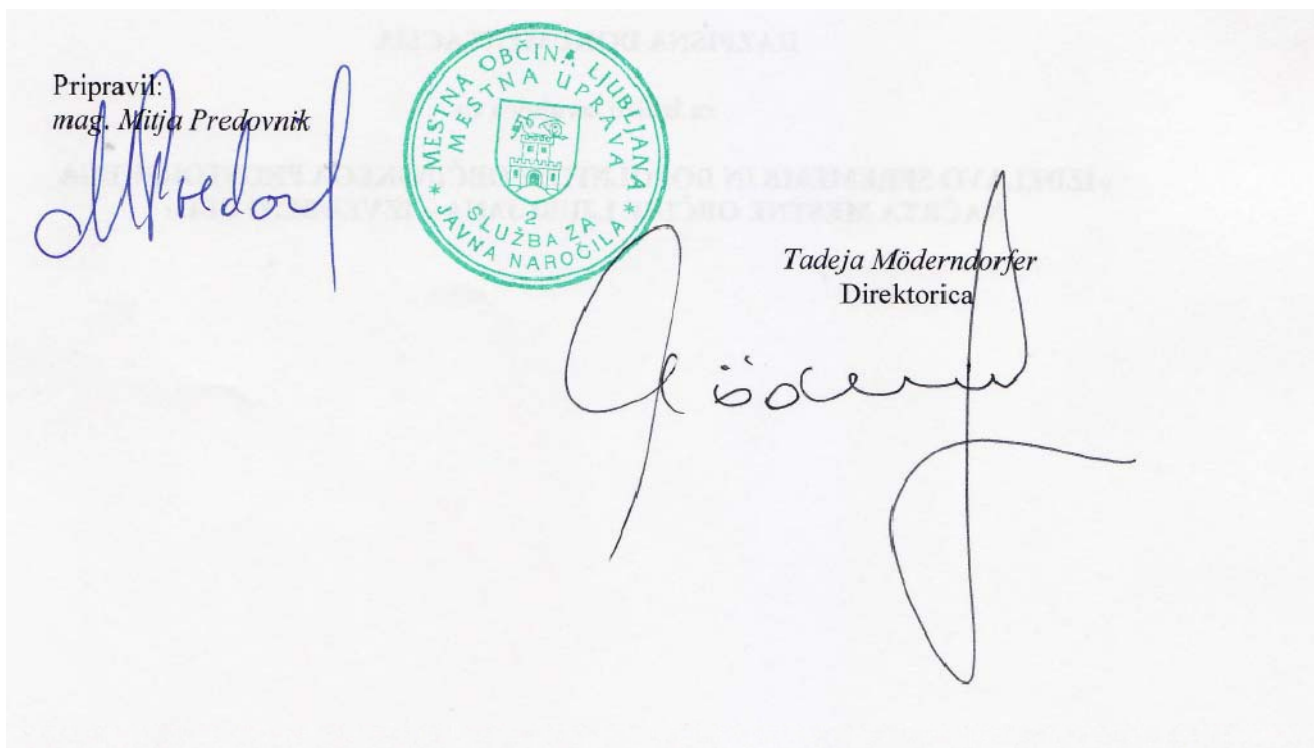 Pripravil:
mag. Mitja Predovnik
MESTNA OBČINA LJUBLJANA
MESTNA UPRAVA
2
SLUŽBA ZA
JAVNA NAROČILA
Tadeja Möderndorfer
Direktorica